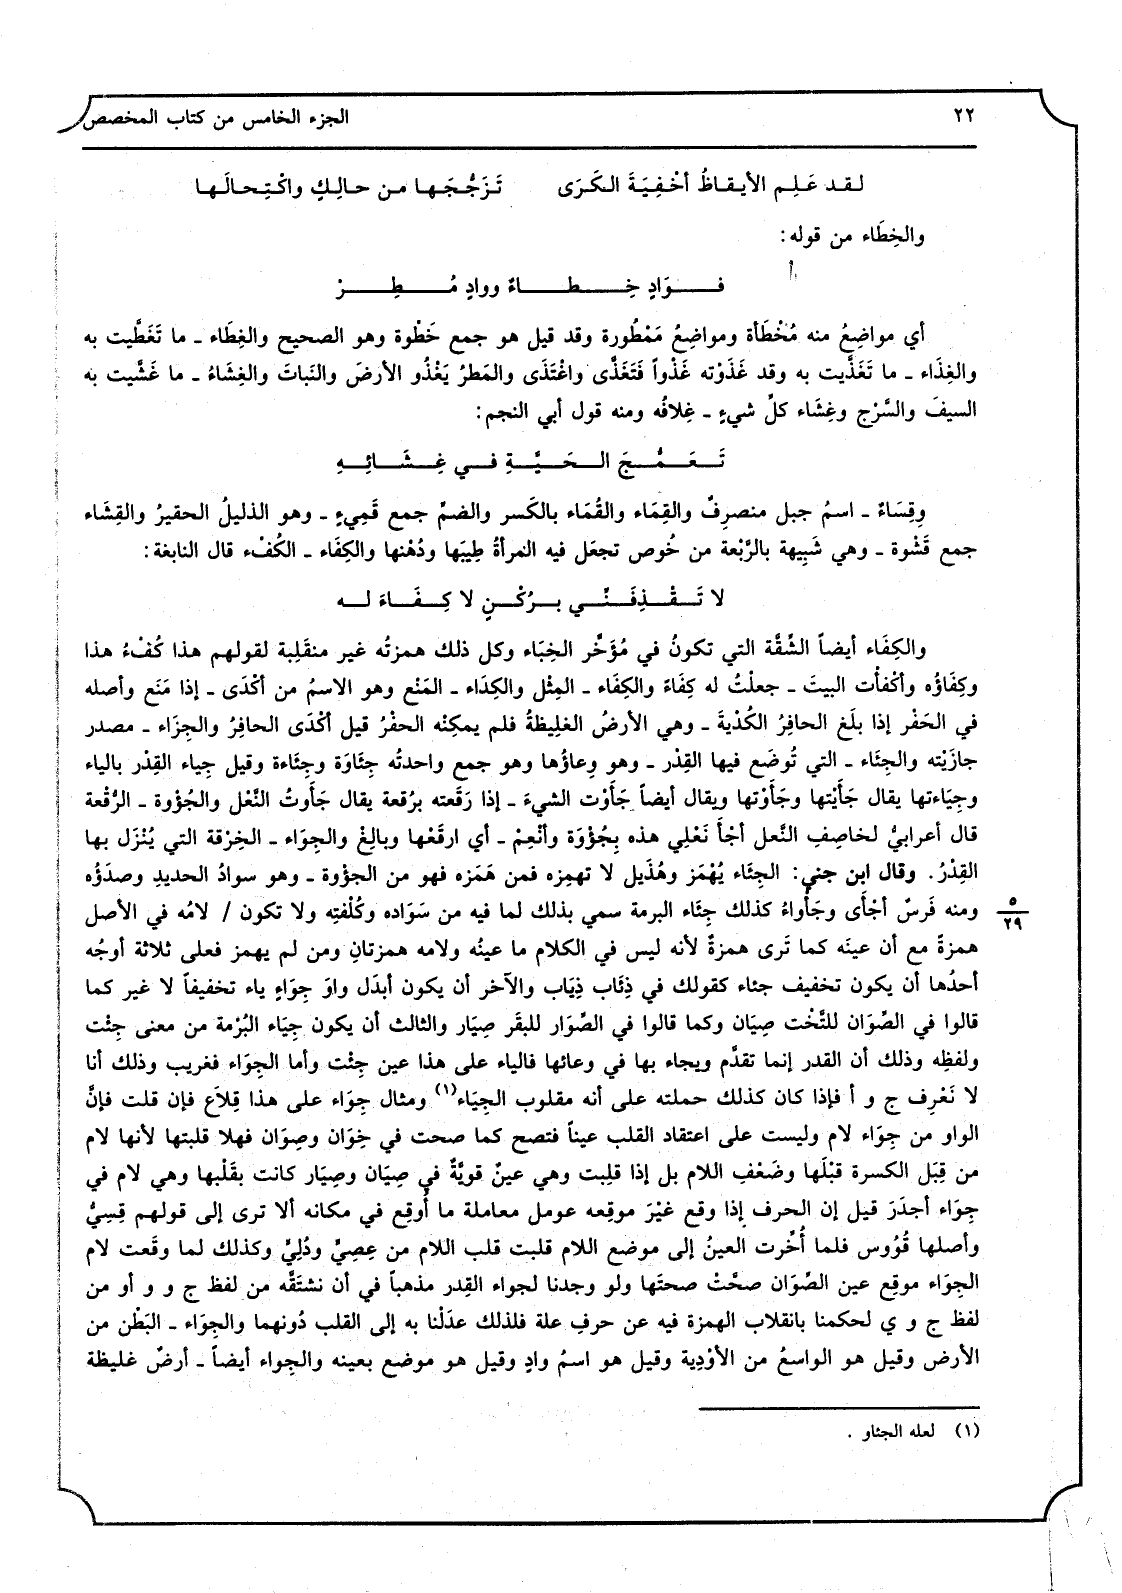 ٢٢ الجزء الخامس من كتاب المخصص
لقد عَلِم الأيقاظُ أخْفِيَةَ الكَرَى تَزَجُّجَها من حالِكٍ واكْتِحالَها
والخِطَاء من قوله:
فَوَادٍ خِطاءٌ ووادٍ مُطِرْ
أي مواضِعُ منه مُخْطَأة ومواضِعُ مَمْطورة وقد قيل هو جمع خَطْوة وهو الصحيح والغِطَاء ـ ما تَغَطَّيت به
والغِذَاء ـ ما تَغَذَّيت به وقد غَذَوْته غَذْواً فَتَغَذَّى واغْتَذَى والمَطرُ يَغْذُو الأرضَ والنَّباتَ والغِشَاءُ ـ ما غَشَّيت به
السيفَ والسَّرْج وغِشَاء كلِّ شيءٍ ـ غِلافُه ومنه قول أبي النجم:
تَعَمُّجَ الحَيَّةِ في غِشَائِهِ
وقِسَاءٌ ـ اسمُ جبل منصرِفٌ والقِمَاء والقُمَاء بالكَسر والضمِّ جمع قَمِيءٍ ـ وهو الذليلُ الحقيرُ والقِشَاء
جمع قَشْوة ـ وهي شَبِيهة بالرَّبْعة من خُوص تجعَل فيه المرأةُ طِيبَها ودُهْنها والكِفَاء ـ الكُفْء قال النابغة:
لا تَقْذِفَنِّي بـرُكْنٍ لا كِفَاءَ له
والكِفَاء أيضاً الشِّقَّة التي تكونُ في مُؤَخَّر الخِبَاء وكل ذلك همزتُه غير منقَلِبة لقولهم هذا كُفْءُ هذا
وكِفَاؤُه وأكْفأت البيتَ ـ جعلْتُ له كِفَاءً والكِفَاء ـ المِثْل والكِدَاء ـ المَنْع وهو الاسمُ من أكْدَى ـ إذا مَنَع وأصله
في الحَفْر إذا بلَغ الحافِرُ الكُدْيةَ ـ وهي الأرضُ الغلِيظةُ فلم يمكِنْه الحفْرُ قيل أكْدَى الحافِرُ والجِزَاء ـ مصدر
جازَيْته والجِئَاء ـ التي تُوضَع فيها القِدْر ـ وهو وِعاؤُها وهو جمع واحدتُه جِئَاوَة وجِئَاءة وقيل جِياء القِدْر بالياء
وجِيَاءتها يقال جَأَيْتها وجَأَوْتها ويقال أيضاً جَأَوْت الشيءَ ـ إذا رَقَعته برُقعة يقال جَأَوتُ النَّعْل والجُؤْوة ـ الرُّقْعة
قال أعرابيٌّ لخاصِف النَّعل أجْأَ نَعْلِي هذه بِجُؤْوَة وأنْعِمْ ـ أي ارقَعْها وبالِغْ والجِوَاء ـ الخِرْقة التي يُنْزَل بها
القِدْرُ. وقال ابن جني: الجِئَاء يُهْمَز وهُذَيل لا تهمِزه فمن هَمَزه فهو من الجؤوة ـ وهو سوادُ الحديدِ وصدَؤُه
ومنه فَرسٌ أجْأَى وجَأْواءُ كذلك جِئَاء البرمة سمي بذلك لما فيه من سَوَاده وكُلْفتِه ولا تكون / لامُه في الأصل
٥
٢٩
همزةً مع أن عينَه كما تَرى همزةٌ لأنه ليس في الكلام ما عينُه ولامه همزتانِ ومن لم يهمز فعلى ثلاثة أوجُه
أحدُها أن يكون تخفيف جئاء كقولك في ذِئَاب ذِيَاب والآخر أن يكون أبدَل واوَ جِوَاءٍ ياء تخفيفاً لا غير كما
قالوا في الصِّوَان للتَّخْت صِيَان وكما قالوا في الصِّوَار للبقَر صِيَار والثالث أن يكون جِيَاء البُرْمة من معنى جِئْت
ولفظِه وذلك أن القدر إنما تقدَّم ويجاء بها في وعائها فالياء على هذا عين جِئْت وأما الجِوَاء فغريب وذلك أنا
لا نَعْرِف ج و أ فإذا كان كذلك حملته على أنه مقلوب الجِيَاء(١) ومثال جِوَاء على هذا قِلاَع فإن قلت فإنَّ
الواو من جِوَاء لام وليست على اعتقاد القلب عيناً فتصح كما صحت في خِوَان وصِوَان فهلا قلبتها لأنها لام
من قِبَل الكسرة قبْلَها وضَعْفِ اللام بل إذا قلِبت وهي عينٌ قويَّةٌ في صِيَان وصِيَار كانت بقَلْبها وهي لام في
جِوَاء أجدَرَ قيل إن الحرف إذا وقع غيْرَ موقِعه عومل معاملة ما أُوقِع في مكانه ألا ترى إلى قولهم قِسِيٌّ
وأصلها قُوُوس فلما أُخِّرت العينُ إلى موضع اللام قلبت قلب اللام من عِصِيٍّ ودُلِيٍّ وكذلك لما وقَعت لام
الجِوَاء موقِع عين الصِّوَان صحَّتْ صحتَها ولو وجدنا لجواء القِدر مذهباً في أن نشتَقَّه من لفظ ج و و أو من
لفظ ج و ي لحكمنا بانقلاب الهمزة فيه عن حرفِ علة فلذلك عدَلْنا به إلى القلب دُونهما والجِوَاء ـ البَطْن من
الأرض وقيل هو الواسعُ من الأوْدِية وقيل هو اسمُ وادٍ وقيل هو موضع بعينه والجِواء أيضاً ـ أرضٌ غليظة
(١) لعله الجئاو .